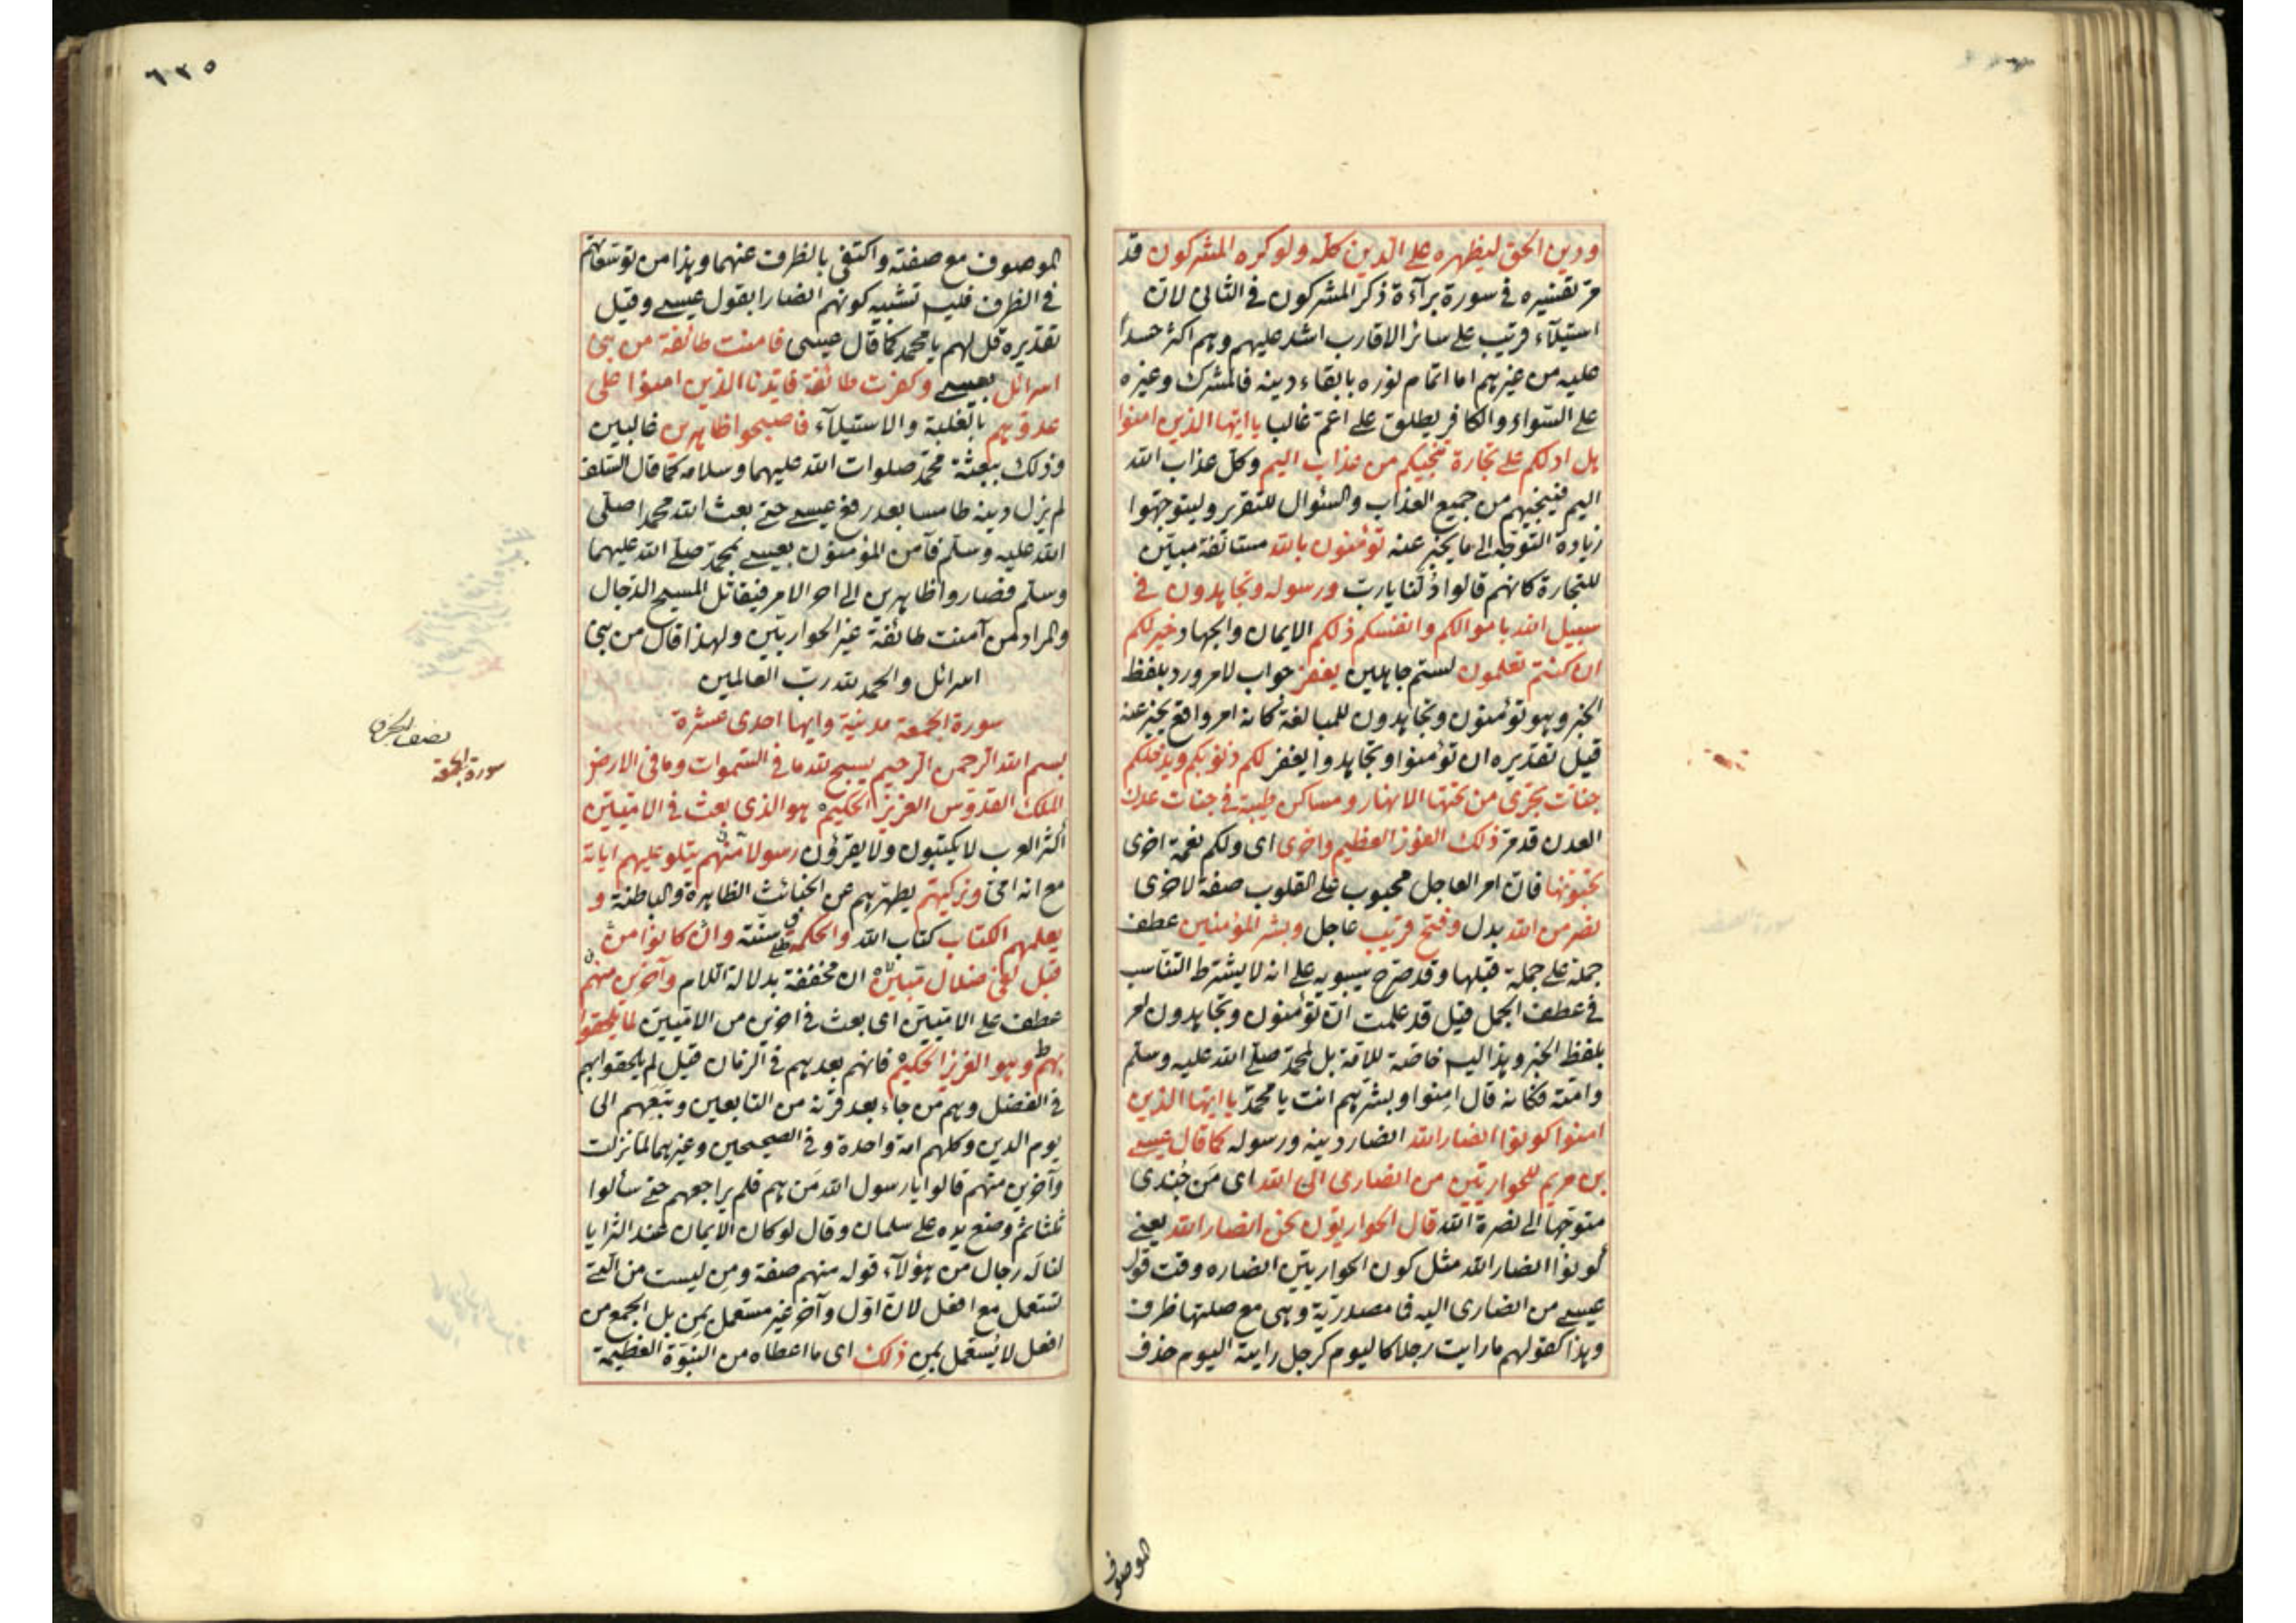 ودين الحق ليظهره على الدين كله ولو كره المشركون قد
مر تفسيره في سورة برآءة ذكر المشركون في الثاني لان
استيلآء قريب على سائر الاقارب اشد عليهم وهم اكثر حسدا
عليه من غيرهم اما اتمام نوره بابقاء دينه فالمشرك وغيره
على السواء والكافر يطلق على اعم غالبا يا ايها الذين امنوا
هل ادلكم على تجارة تنجيكم من عذاب اليم وكل عذاب الله
اليم فينجيهم من جميع العذاب والسئوال للتقرير وليتوجهوا
زيادة التوجه الى ما يخبر عنه تؤمنون بالله مستانفة مبين
للتجارة كانهم قالوا دُلّنا يا رب ورسوله وتجاهدون في
سبيل الله باموالكم وانفسكم ذلكم الايمان والجهاد خير لكم
ان كنتم تعلمون لستم جاهلين يغفر جواب لامر ورد بلفظ
الخبر وهو تؤمنون وتجاهدون للمبالغة كانه امر واقع يخبر عنه
قيل تقديره ان تؤمنوا وتجاهدوا يغفر لكم ذنوبكم ويدخلكم
جنات تجرى من تحتها الانهار ومساكن طيبة في جنات عدن
العدن قد مر ذلك الفوز العظيم واخرى اى ولكم نعمة اخرى
تحبونها فان امر العاجل محبوب على القلوب صفة لاخرى
نصر من الله بدل وفتح قريب عاجل وبشر المؤمنين عطف
جملة على جملة قبلها وقد صرح سيبويه على انه لا يشترط التناسب
في عطف الجمل قيل قد علمت ان تؤمنون وتجاهدون امر
بلفظ الخبر وهذا ليس خاصة للامة بل لمحمد صلى الله عليه وسلم
وامته فكانه قال امِنوا وبشرهم انت يا محمد يا ايها الذين
امنوا كونوا انصار الله انصار دينه ورسوله كما قال عيسى
بن مريم للحواريين من انصارى الى الله اى مَن جُندى
متوجها الى نصرة الله قال الحواريون نحن انصار الله يعنى
كونوا انصار الله مثل كون الحواريين انصاره وقت قول
عيسى من انصارى اليه فما مصدرية وهى مع صلتها ظرف
وهذا كقولهم ما رايت رجلا كاليوم كرجل رايته اليوم حذف
الموصوف
٦٣٥
الموصوف مع صفته واكتفى بالظرف عنهما وهذا من توسعاتهم
في الظرف فليس تشبيه كونهم انصارا بقول عيسى وقيل
تقديره قل لهم يا محمد كما قال عيسى فامنت طائفة من بنى
اسرائل بعيسى وكفرت طائفة فايدنا الذين امنوا على
عدوهم بالغلبة والاستيلآء فاصبحوا ظاهرين غالبين
وذلك ببعثة محمد صلوات الله عليهما وسلامه كما قال السلف
لم يزل دينه طامسا بعد رفع عيسى حتى بعث الله محمدا صلى
الله عليه وسلم فآمن المؤمنون بعيسى بمحمد صلى الله عليهما
وسلم فصاروا ظاهرين الى اخر الامر فيقاتل المسيح الدجال
والمراد من آمنت طائفة غير الحواريين ولهذا قال من بنى
اسرائل والحمد لله رب العالمين
سورة الجمعة مدنية وايها احدى عشرة
نصف الجزء
سورة الجمعة
بسم الله الرحمن الرحيم يسبح لله ما في السموات وما في الارض
الملك القدوس العزيز الحكيم هو الذى بعث في الاميين
أكثر العرب لا يكتبون ولا يقرؤن رسولا منهم يتلو عليهم اياته
مع انه امى ويزكيهم يطهرهم عن الخبائث الظاهرة والباطنة و
يعلمهم الكتاب كتاب الله والحكمة سنته وان كانوا من
قبل لفى ضلال مبين ان مخففة بدلالة اللام وآخرين منهم
عطف على الاميين اى بعث في اخرين من الاميين لما يلحقوا
بهم وهو العزيز الحكيم فانهم بعدهم في الزمان قيل لم يلحقوا بهم
في الفضل وهم من جاء بعد قرنه من التابعين وتبعهم الى
يوم الدين وكلهم امة واحدة وفي الصحيحين وغيرهما لما نزلت
وآخرين منهم قالوا يا رسول الله مَن هم فلم يراجعهم حتى سألوا
ثلثا ثم وضع يده على سلمان وقال لو كان الايمان عند الثرايا
لناله رجال من هؤلآء قوله منهم صفة ومِن ليست من التى
تستعمل مع افعل لان اول وآخر غير مستعمل بمِن بل الجمع من
افعل لا يُستعمل بمِن ذلك اى ما اعطاه من النبوة العظيمة